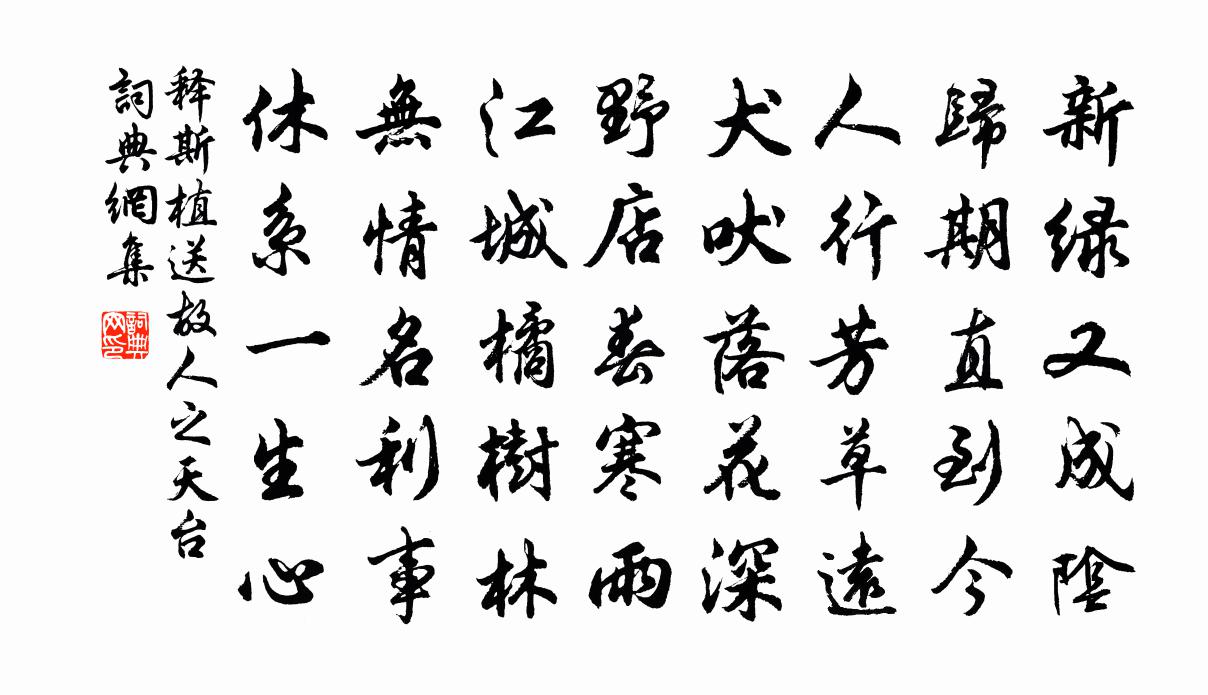 新緑又成陰
歸期直到今
人行芳草遠
犬吠落花深
野店春寒雨
江城橘樹林
無情名利事
休系一生心
释斯植送故人之天台
詞典網集
詞典网印